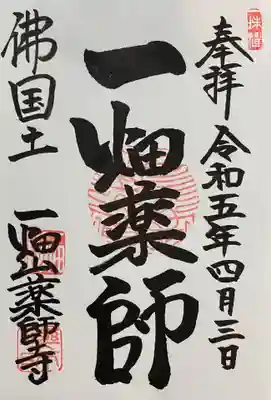 奉拝 令和五年四月三日
一畑薬師
佛国土
一畑山薬師寺